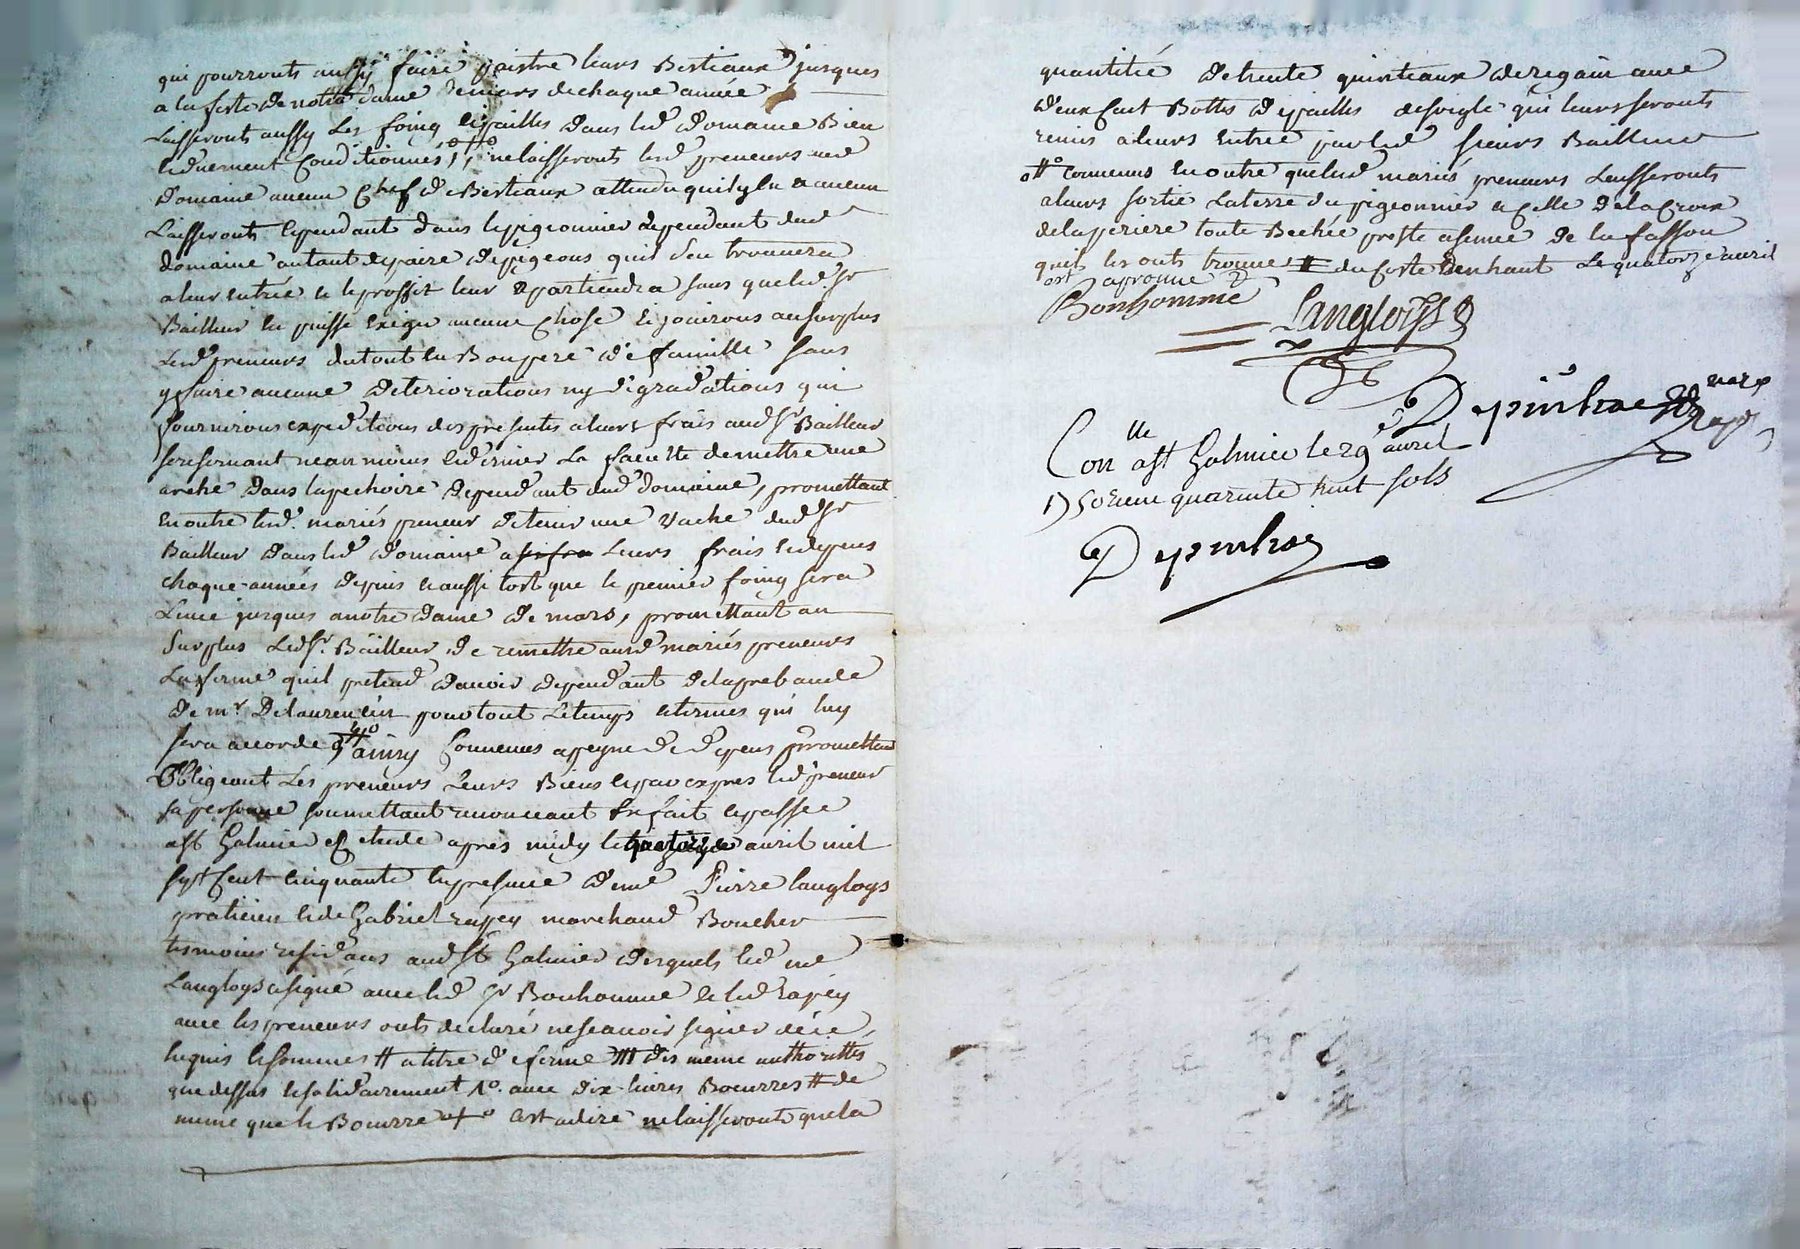 qui pourronts aussy faire paistre leurs Bestiaux jusques
a la feste de notre dame de mars de chaque année
Laisseronts aussy Les foing et pailles dans led domaine Bien
et duement Conditionnés, ne laisseronts lesd preneurs aud
Domaine aucun Chef de Bestiaux attendu quil ny en a aucun
Laisseronts Cependant dans le pigeonnier dependant dud
domaine autant de paire de pigeons quil s'en trouvera
a leur entrée et le proffit leur apartiendra sans que led. Sr
Bailleur en puisse Exiger aucune Chose et jouirons au surplus
Lesd preneurs du tout en Bon pere de famille sans
y faire aucune deteriorations ny degradations qui
fourniront expeditions des presentes a leurs frais aud Sr Bailleur
se reservant neanmoins led dernier La faculté de mettre une
arche dans la pechoire dependant dud domaine, promettant
en outre lesd. mariés preneur de tenir une vache dud Sr
Bailleur dans led domaine a Leurs frais et depens
chaque années depuis et aussi tost que le premier foing sera
Levé jusques a notre dame de mars, promettant au
surplus Led Sr. Bailleur de remettre ausd mariés preneurs
La ferme quil pretend d'avoir dependant de la prebande
de mr Delaurencin pour tout Le temps et termes qui luy
sera accordé ainsy Convenus a peyne de depens promettant
Obligeant Les preneurs Leurs Biens et par expres led preneur
sa personne soumettant renonceant &c fait et passé a
a St Galmier etude après midy le quatorze avril mil
sept Cent Cinquante en presence d'eme Pierre Langloys
praticien et de Gabriel rapey marchand Boucher
temoins residans aud St Galmier desquels led me
Langloys a signé avec led Sr Bonhomme et led Rapey
avec les preneurs onts declaré ne scavoir signer de ce
enquis et sommés # a titre de ferme ## des meme authorittes
que dessus et solidairement 1º. avec dix livres Boeurres # de
meme que le Boeurre ++º C'est a dire ne laisseronts que la
quantitié de trente quinteaux de regain avec
deux Cent Bottes de pailles de soigle qui leurs seronts
remis a leurs entrée par led sieurs Bailleur
o#º Convenus en outre que lesd mariés preneurs Laisseronts
a leurs sortie La terre du pigeonnier et Celle de la Croix
de la periere toute Bechée preste a semer de la fasson
quils les onts trouvé # du reste d'en haut Le quatorze avril
est aprouvé
Bonhomme
Langloys
Depinhac
nore
Conlle a St Galmier le 29 avril
1750 Reçeu quarente huit sols
Depinhac